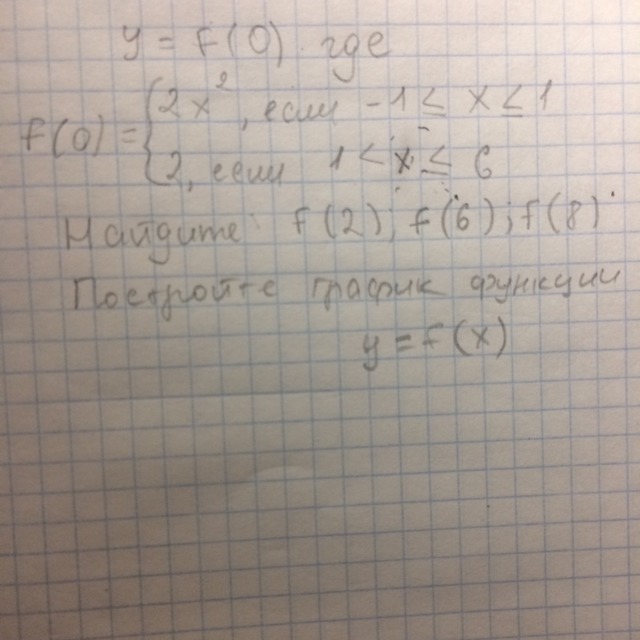 y = F(0) где
F(0) = { 2x², если -1 ≤ x ≤ 1
2, если 1 < x ≤ 6
Найдите F(2), F(6), F(8).
Постройте график функции
y = F(x)